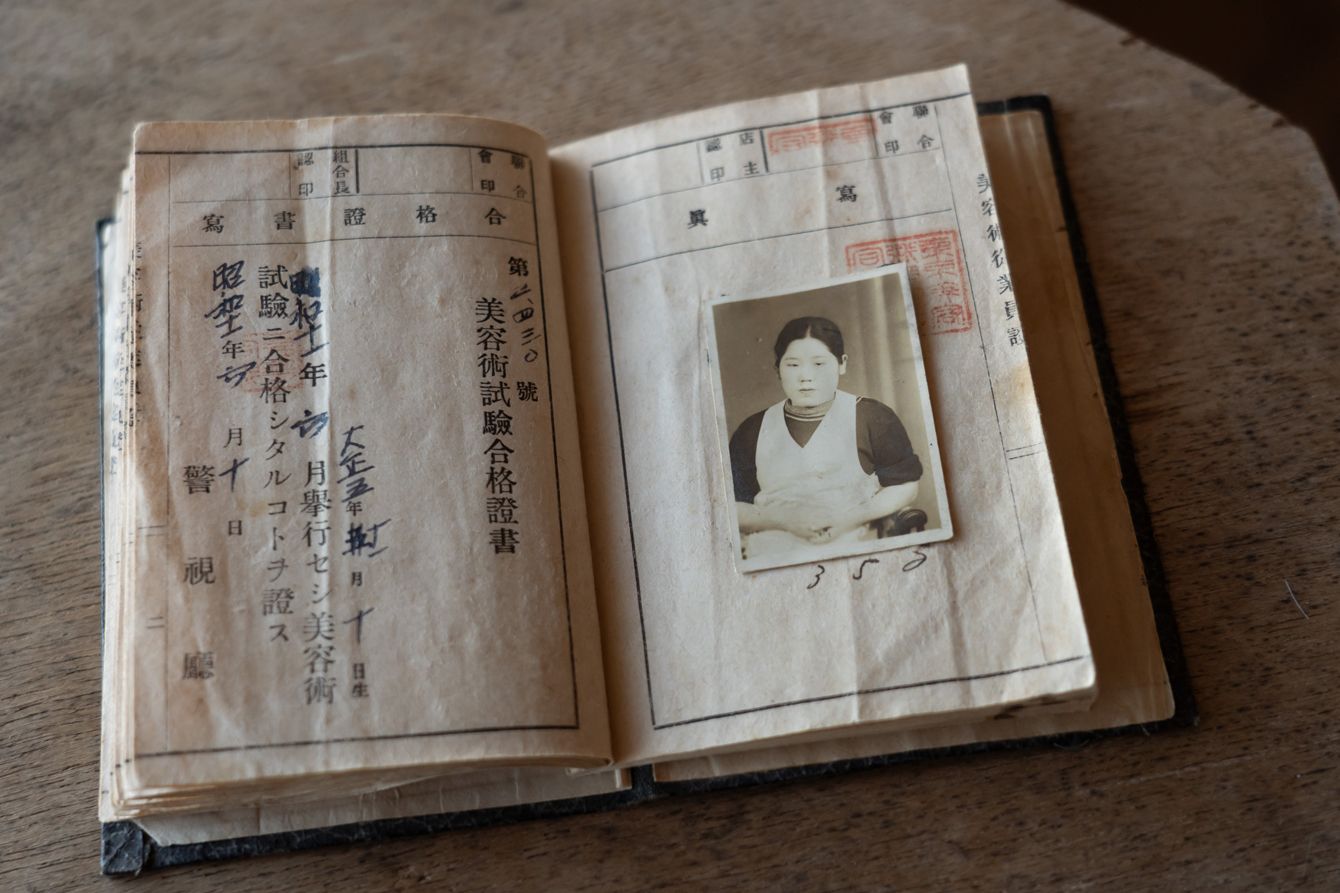 美容術從業員證
聯合會印
店主認印
寫眞
35
聯合會印
組合長認印
合格證書寫
第 四三〇號
美容術試驗合格證書
大正五年 月十日生
昭和十一年 月擧行セシ美容術
試驗ニ合格シタルコトヲ證ス
昭和十一年 月十日
警視廳
一
二